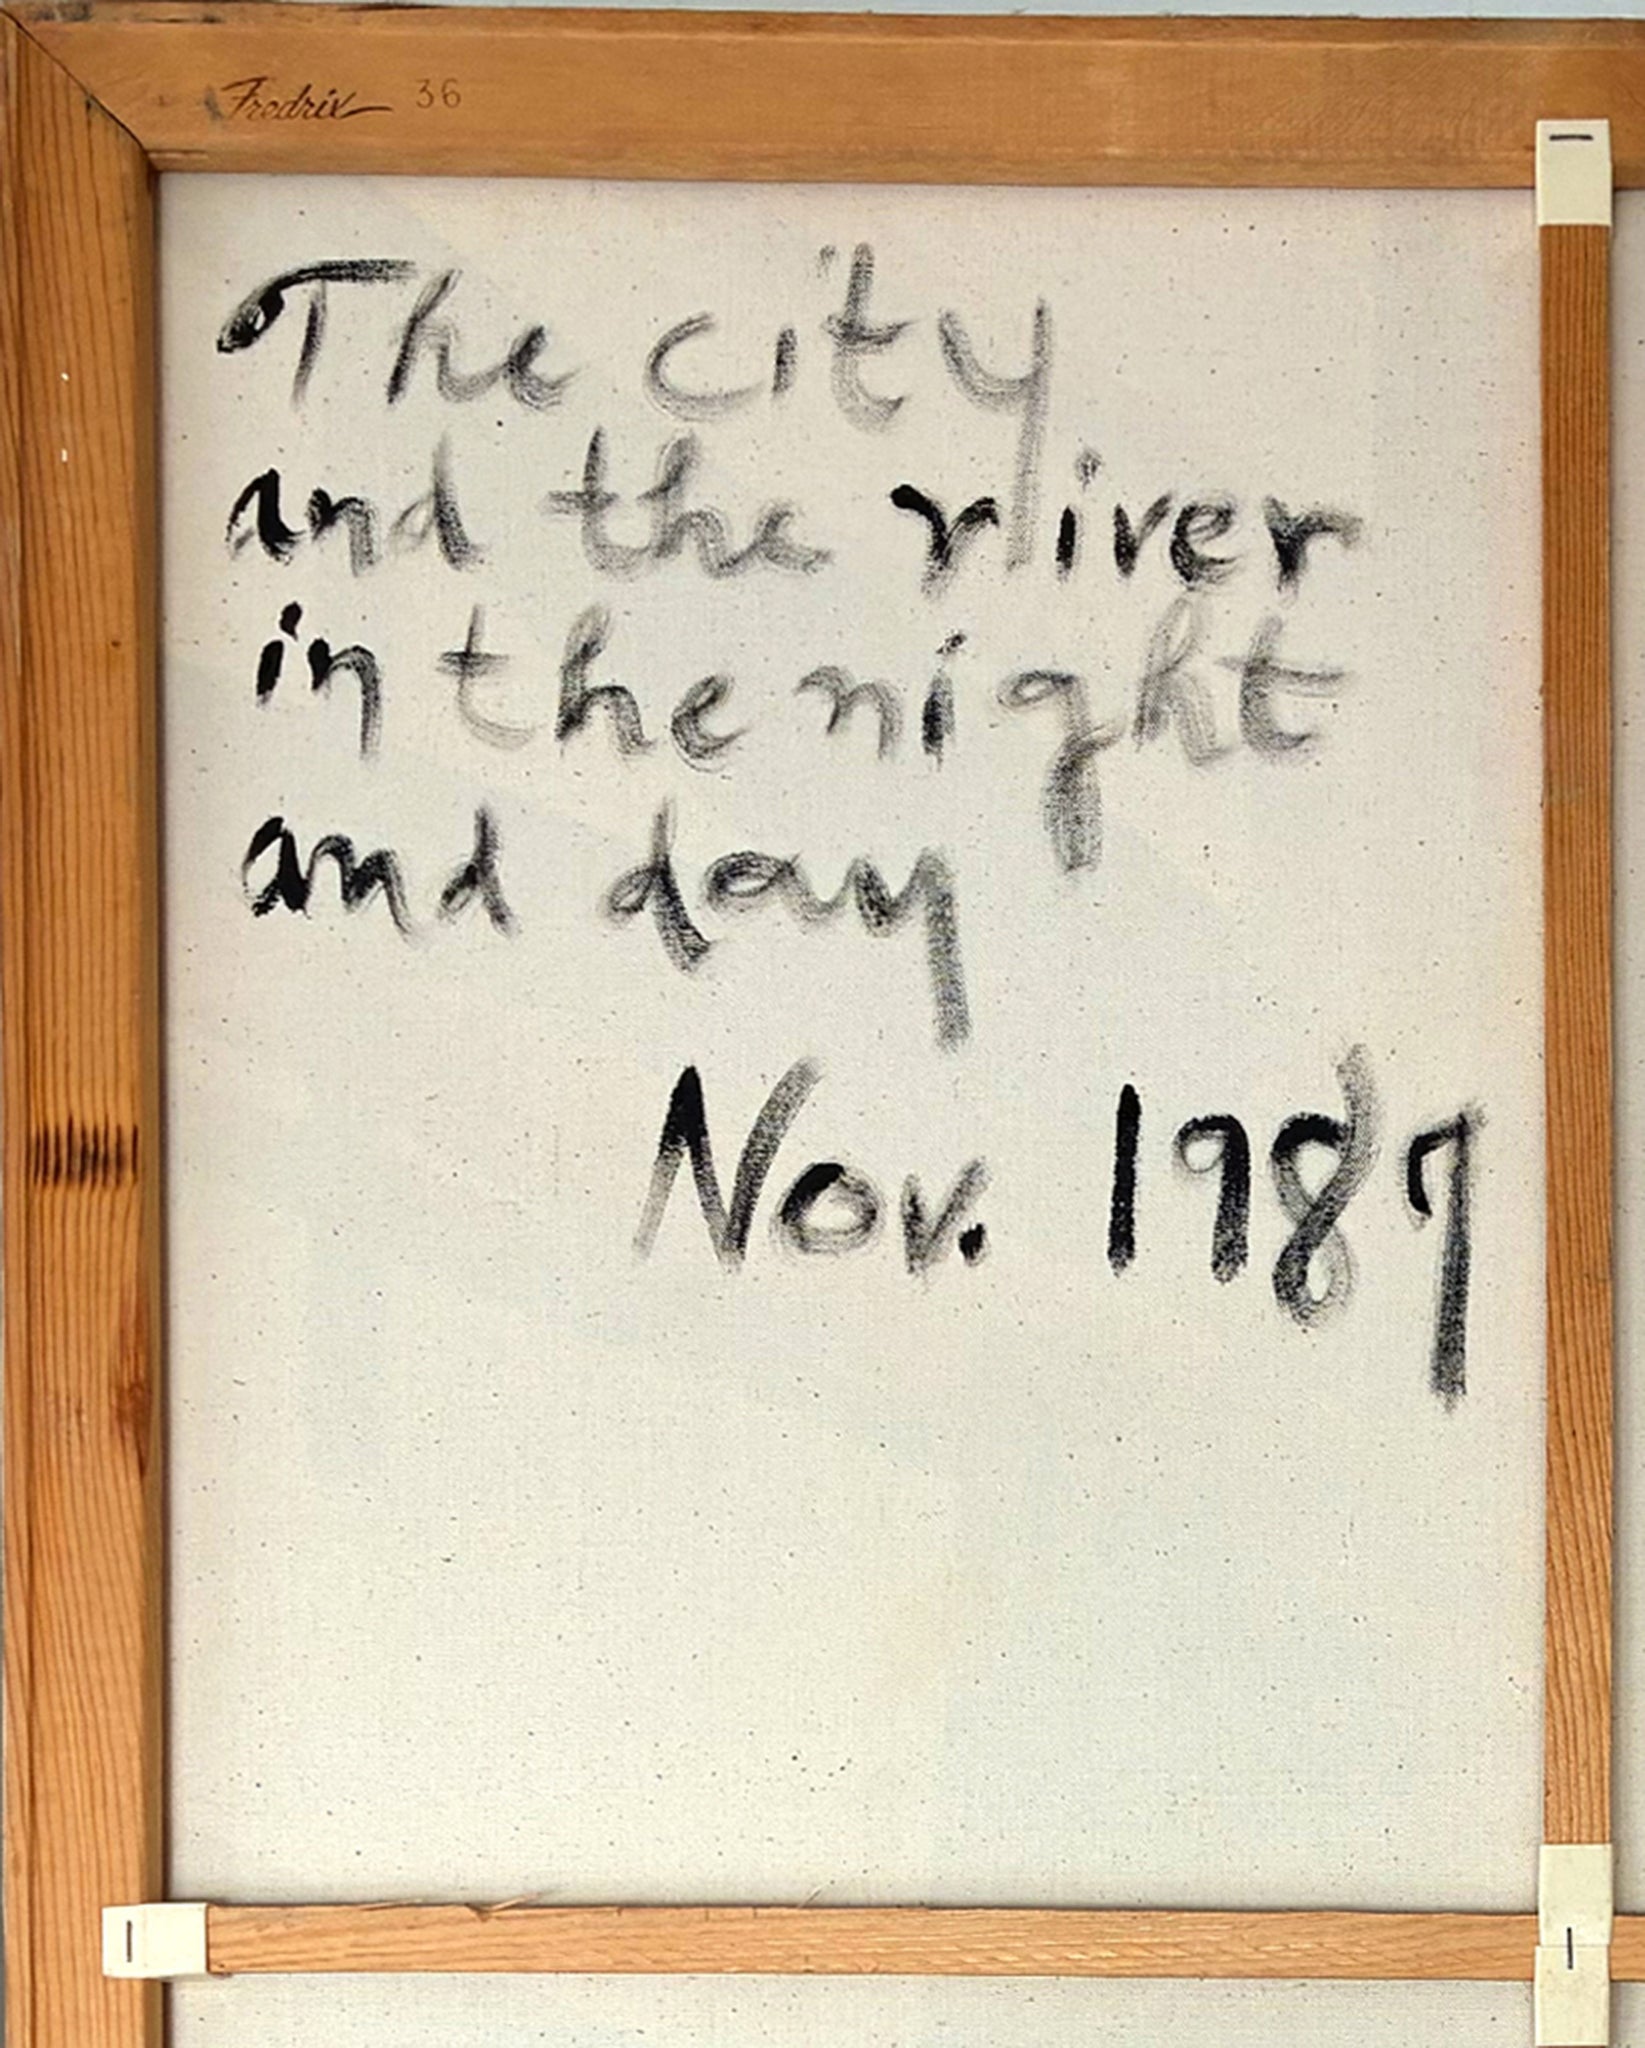 Fredrix 36
The city
and the river
in the night
and day
Nov. 1987